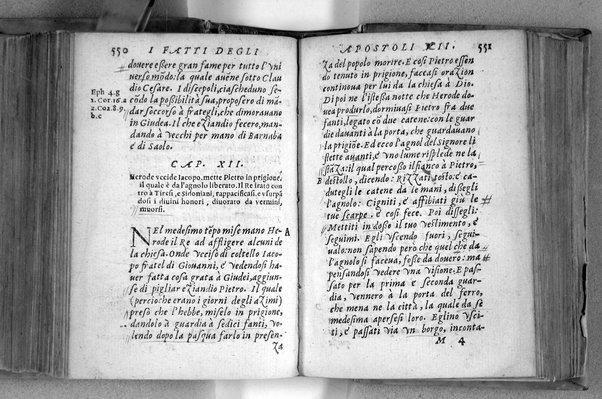 550 I FATTI DEGLI
dovere eßere gran fame per tutto l'vni
verso mōdo: la quale avēne sotto Clau
dio Cesare. I discepoli, ciascheduno se-
cōdo la possibilità sua, proposero di mā-
dar soccorso à frategli, che dimoravano
in Giudea. Il che eziandio fecero, man-
dando à vecchi per mano di Barnaba
e di Saolo.
Eph 4.g
1. Cor. 16.a
2. Co2.8.9.
b.c
CAP. XII.
Herode vccide Iacopo. mette Pietro in prigione,
il quale è da l'agnolo liberato. Il Re irato con
tro à Tiresi, e sidoniani, rappacificasi. e vsurpā
dosi i divini honori, divorato da vermini,
muorsi.
NEl medesimo tēpo mise mano He-
rode il Re ad affligere alcuni de
la chiesa. Onde vcciso di coltello Iaco-
po fratel di Giovanni, e vedendosi ha-
ver fatta cosa grata à Giudei, aggiun-
se di pigliar eziandio Pietro. Il quale
(percioche erano i giorni degli azimi)
preso che l'hebbe, miselo in prigione,
dandolo à guardia à sedici fanti, vo-
lendo dopo la pasqua farlo in presen-
A
za
APOSTOLI XII. 551
za del popolo morire. E cosi Pietro essen
do tenuto in prigione, faceasi orazion
continoua per lui da la chiesa à Dio.
Di poi ne l'istessa notte che Herode do-
vea produrlo, dormivasi Pietro fra due
fanti, legato cō due catene: con le guar
die davanti à la porta, che guardauano
la prigiōe. Ed ecco l'agnol del Signore li
stette avanti, e vno lume risplēdè ne la
stāza: il qual percosso il fianco à Pietro,
B destollo, dicendo: Rizzati tosto: e ca-
dutegli le catene da le mani, dissegli
l'agnolo: Cigniti, e affibiati giù le
tue scarpe. e cosi fece. Poi dissegli:
Mettiti indosso il tuo vestimento, e
seguimi. Egli vscendo fuori, segui-
valo: non sapendo però che quel che da
l'agnolo si faceua, fosse da dovero: ma
pensandosi vedere vna visione. E pas-
sato per la prima e seconda guar-
dia, vennero à la porta del ferro,
che mena ne la città, la quale da se
medesima apersesi loro. Eglino vsci-
ti, e passati via vn borgo, inconta-
M 4